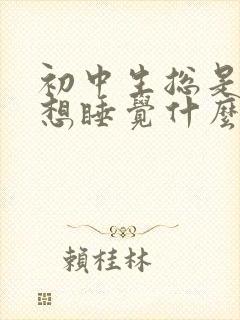 初中生总是
想睡觉什麼
賴桂林